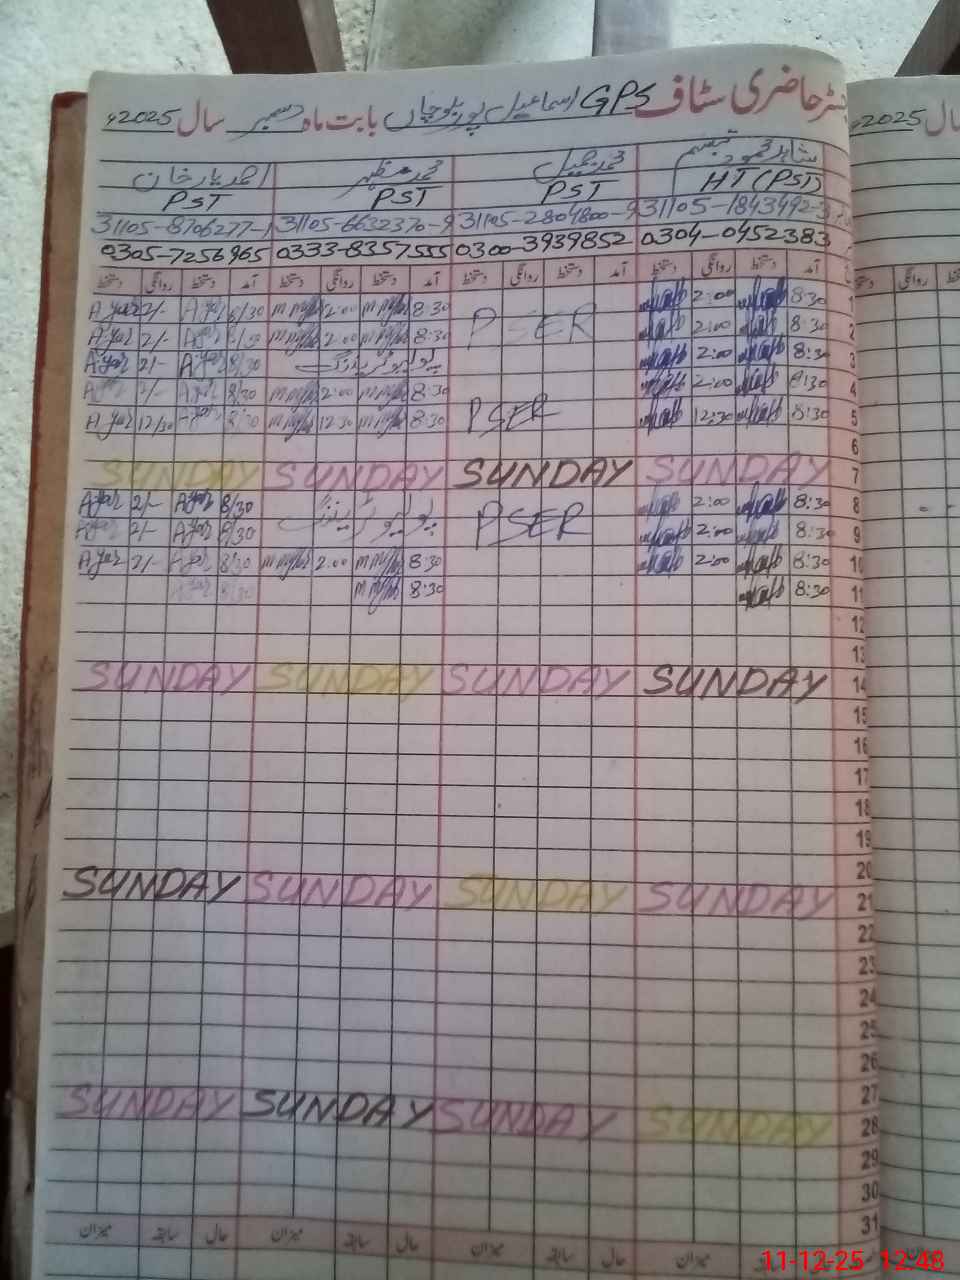 رجسٹر حاضری سٹاف GPS اسماعیل پور بلوچاں بابت ماہ دسمبر سال 2025ء
سال 2025ء
شاہد محمود تبسم محمد جمیل محمد مظہر احمد یار خان
HT (PST) PST PST PST
31105-1843492-3 31105-2804800-9 31105-6632370-9 31105-8706277-1
0304-0452383 0300-3939852 0333-8357555 0305-7256965
آمد دستخط روانگی دستخط آمد دستخط روانگی دستخط آمد دستخط روانگی دستخط آمد دستخط روانگی دستخط
1 8:30 2:00 PSER 8:30 2:00 8/30 A.yar 2/- A.yar
2 8:30 2:00 8:30 2:00 8/30 A.yar 2/- A.yar
3 8:30 2:00 پولیو ٹریننگ 8/30 A.yar 2/- A.yar
4 8:30 2:00 8:30 2:00 8/30 A.yar 2/- A.yar
5 8:30 12:30 PSER 8:30 12:30 8/30 A.yar 12/30 A.yar
6
7 SUNDAY SUNDAY SUNDAY SUNDAY
8 8:30 2:00 PSER پولیو ٹریننگ 8/30 A.yar 2/- A.yar
9 8:30 2:00 8/30 A.yar 2/- A.yar
10 8:30 2:00 8:30 2:00 8/30 A.yar 2/- A.yar
11 8:30 8:30 8/30 A.yar
12
13
14 SUNDAY SUNDAY SUNDAY SUNDAY
15
16
17
18
19
20
21 SUNDAY SUNDAY SUNDAY SUNDAY
22
23
24
25
26
27
28 SUNDAY SUNDAY SUNDAY SUNDAY
29
30
31
میزان حال سابقہ میزان حال سابقہ میزان حال سابقہ میزان
11-12-25 12:48